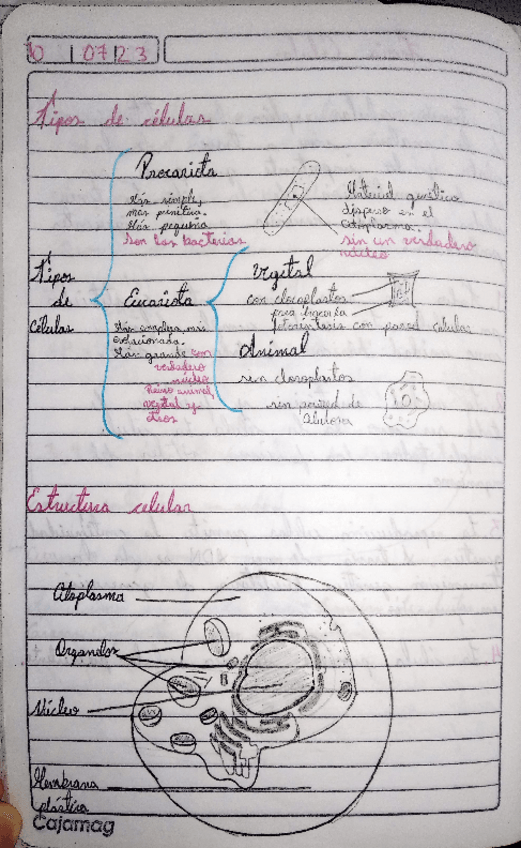 10 | 07 | 23
Tipos de células
Procariota
Más simple,
mas primitiva.
Más pequeña
Son las bacterias
Material genético
disperso en el
citoplasma.
sin un verdadero
núcleo
Tipos
de
Células
Eucariota
Más compleja, mas
evolucionada.
Más grande con
verdadero
núcleo
Reino animal,
vegetal y
otros
Vegetal
con cloroplastos
para hacer la
fotosintesis con pared celular
Animal
sin cloroplastos
sin pared de
celulosa
Estructura celular
Citoplasma
Organelos
Núcleo
Membrana
plástica
Cajamag